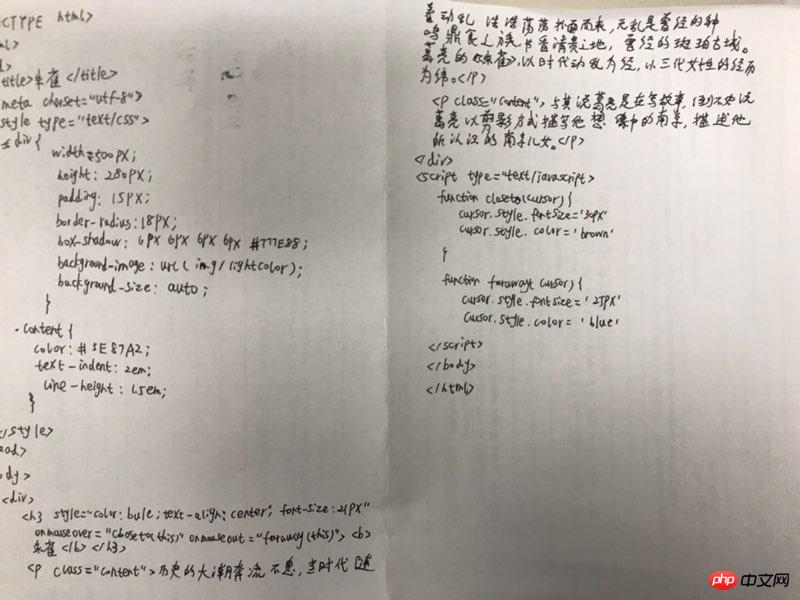 CTYPE html>
ml>
d>
title>朱雀</title>
meta charset="utf-8">
style type="text/css">
div {
width=500px;
height: 280px;
padding: 15px;
border-radius: 18px;
box-shadow: 6px 6px 6px 6px #777E88;
background-image: url( img/lightcolor);
background-size: auto;
}
.content {
color: #5E87A2;
text-indent: 2em;
line-height: 1.5em;
}
</style>
ead>
ody>
<div>
<h3 style="color: bule; text-align: center; font-size: 25px"
onmouseover="closeto(this)" onmouseout="faraway(this)"> <b>
朱雀</b> </h3>
<p class="content">历史的大潮奔流不息,当时代随
着动乱 浩浩荡荡扑面而来,无乱是曾经的种
鸣鼎食之族书香清贵之地,曾经的斑珀古城。
葛亮的《朱雀》,以时代动乱为经,以三代女性的经历
为纬。</p>
<p class="content", 与其说葛亮是在写故事,倒不如说
葛亮以剪影方式描写他想 像中的南京,描述他
所认识的南京儿女。</p>
</div>
<script type="text/javascript>
function closeto(cursor) {
cursor.style.fontsize='30px'
cursor.style.color='brown'
}
function faraway( cursor) {
cursor.style.fontsize='25px'
cursor.style.color='blue'
</script>
</body>
</html>
php 中文网